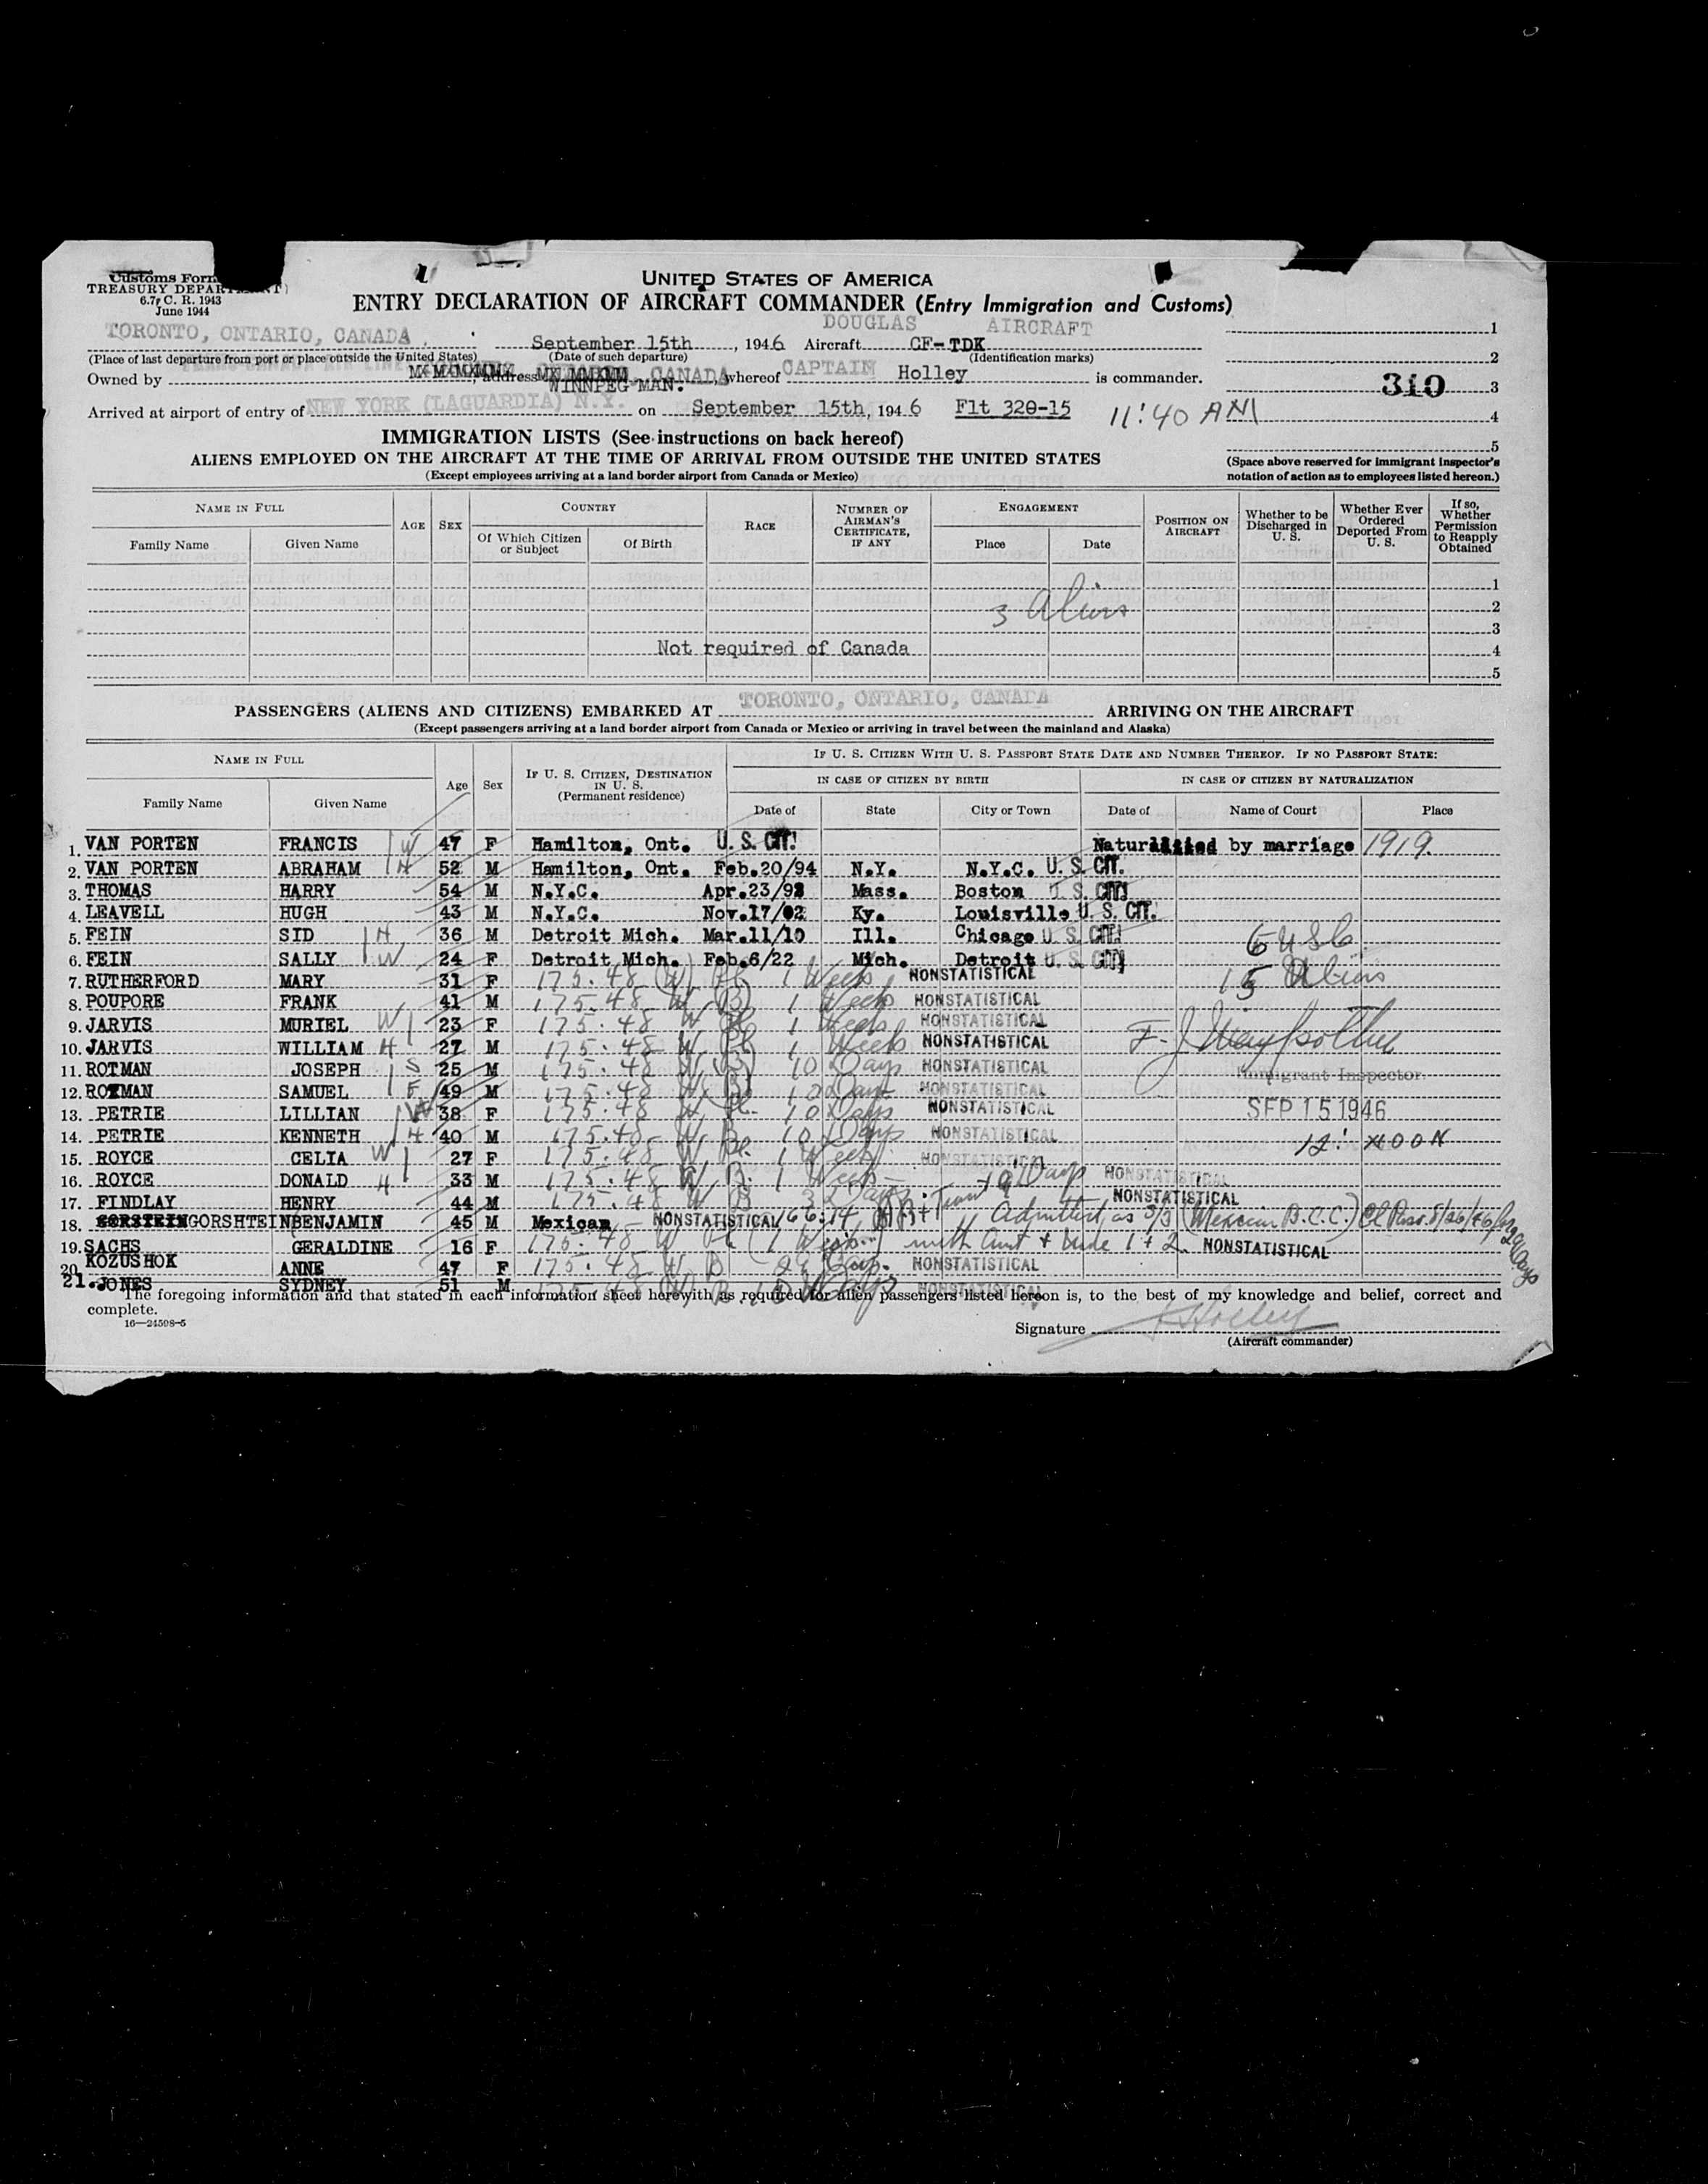 Customs Form
TREASURY DEPARTMENT
6.7, C. R. 1943
June 1944
UNITED STATES OF AMERICA
ENTRY DECLARATION OF AIRCRAFT COMMANDER (Entry Immigration and Customs)
TORONTO, ONTARIO, CANADA September 15th, 1946 Aircraft DOUGLAS AIRCRAFT CF-TDK 1
(Place of last departure from port or place outside the United States) (Date of such departure) (Identification marks) 2
Owned by , address WINNIPEG MAN. CANADA, whereof CAPTAIN Holley is commander. 310 3
Arrived at airport of entry of NEW YORK (LAGUARDIA) N.Y. on September 15th, 1946 Flt 320-15 11:40 AM 4
IMMIGRATION LISTS (See instructions on back hereof) 5
ALIENS EMPLOYED ON THE AIRCRAFT AT THE TIME OF ARRIVAL FROM OUTSIDE THE UNITED STATES
(Except employees arriving at a land border airport from Canada or Mexico)
(Space above reserved for immigrant inspector's notation of action as to employees listed hereon.)
NAME IN FULL AGE SEX COUNTRY RACE NUMBER OF AIRMAN'S CERTIFICATE, IF ANY ENGAGEMENT POSITION ON AIRCRAFT Whether to be Discharged in U. S. Whether Ever Ordered Deported From U. S. If so, Whether Permission to Reapply Obtained
Family Name Given Name Of Which Citizen or Subject Of Birth Place Date
1
3 Aliens 2
3
Not required of Canada 4
5
PASSENGERS (ALIENS AND CITIZENS) EMBARKED AT TORONTO, ONTARIO, CANADA ARRIVING ON THE AIRCRAFT
(Except passengers arriving at a land border airport from Canada or Mexico or arriving in travel between the mainland and Alaska)
NAME IN FULL Age Sex IF U. S. CITIZEN, DESTINATION IN U. S. (Permanent residence) IF U. S. CITIZEN WITH U. S. PASSPORT STATE DATE AND NUMBER THEREOF. IF NO PASSPORT STATE:
IN CASE OF CITIZEN BY BIRTH IN CASE OF CITIZEN BY NATURALIZATION
Family Name Given Name Date of State City or Town Date of Name of Court Place
1. VAN PORTEN FRANCIS W 47 F Hamilton, Ont. U. S. CIT. Naturalized by marriage 1919.
2. VAN PORTEN ABRAHAM H 52 M Hamilton, Ont. Feb.20/94 N.Y. N.Y.C. U. S. CIT.
3. THOMAS HARRY 54 M N.Y.C. Apr.23/92 Mass. Boston U. S. CIT.
4. LEAVELL HUGH 43 M N.Y.C. Nov.17/02 Ky. Louisville U. S. CIT.
5. FEIN SID H 36 M Detroit Mich. Mar.11/10 Ill. Chicago U. S. CIT. 6 USC
6. FEIN SALLY W 24 F Detroit Mich. Feb.6/22 Mich. Detroit U. S. CIT.
7. RUTHERFORD MARY 31 F 175.48 W Pl 1 Week NONSTATISTICAL 15 Aliens
8. POUPORE FRANK 41 M 175.48 W B 1 Week NONSTATISTICAL
9. JARVIS MURIEL W 23 F 175.48 W Pl 1 Week NONSTATISTICAL
10. JARVIS WILLIAM H 27 M 175.48 W Pl 1 Week NONSTATISTICAL
11. ROTMAN JOSEPH S 25 M 175.48 W B 10 Days NONSTATISTICAL
Immigrant Inspector
12. ROTMAN SAMUEL F 49 M 175.48 W B 10 Days NONSTATISTICAL
13. PETRIE LILLIAN W 38 F 175.48 W Pl. 10 Days NONSTATISTICAL SEP 15 1946
14. PETRIE KENNETH H 40 M 175.48 W Pl 10 Days NONSTATISTICAL 12: NOON
15. ROYCE CELIA W 27 F 175.48 W Pl. 1 Week NONSTATISTICAL
16. ROYCE DONALD H 33 M 175.48 W B. 1 Week NONSTATISTICAL
17. FINDLAY HENRY 44 M 175.48 W B Days NONSTATISTICAL
18. GORSHTEIN BENJAMIN 45 M Mexican NONSTATISTICAL 166:14 Admitted as 3/3 (Mexican B.C.C.)
19. SACHS GERALDINE 16 F 175.48 W Pl (1 Week) with Aunt + Uncle 1 + 2. NONSTATISTICAL
20. KOZUSHOK ANNE 47 F 175.48 W B Days. NONSTATISTICAL
21. JONES SYDNEY 51 M 175.48 W B 10 Days NONSTATISTICAL
The foregoing information and that stated in each information sheet herewith as required for alien passengers listed hereon is, to the best of my knowledge and belief, correct and complete.
16—24598-5
Signature Holley
(Aircraft commander)